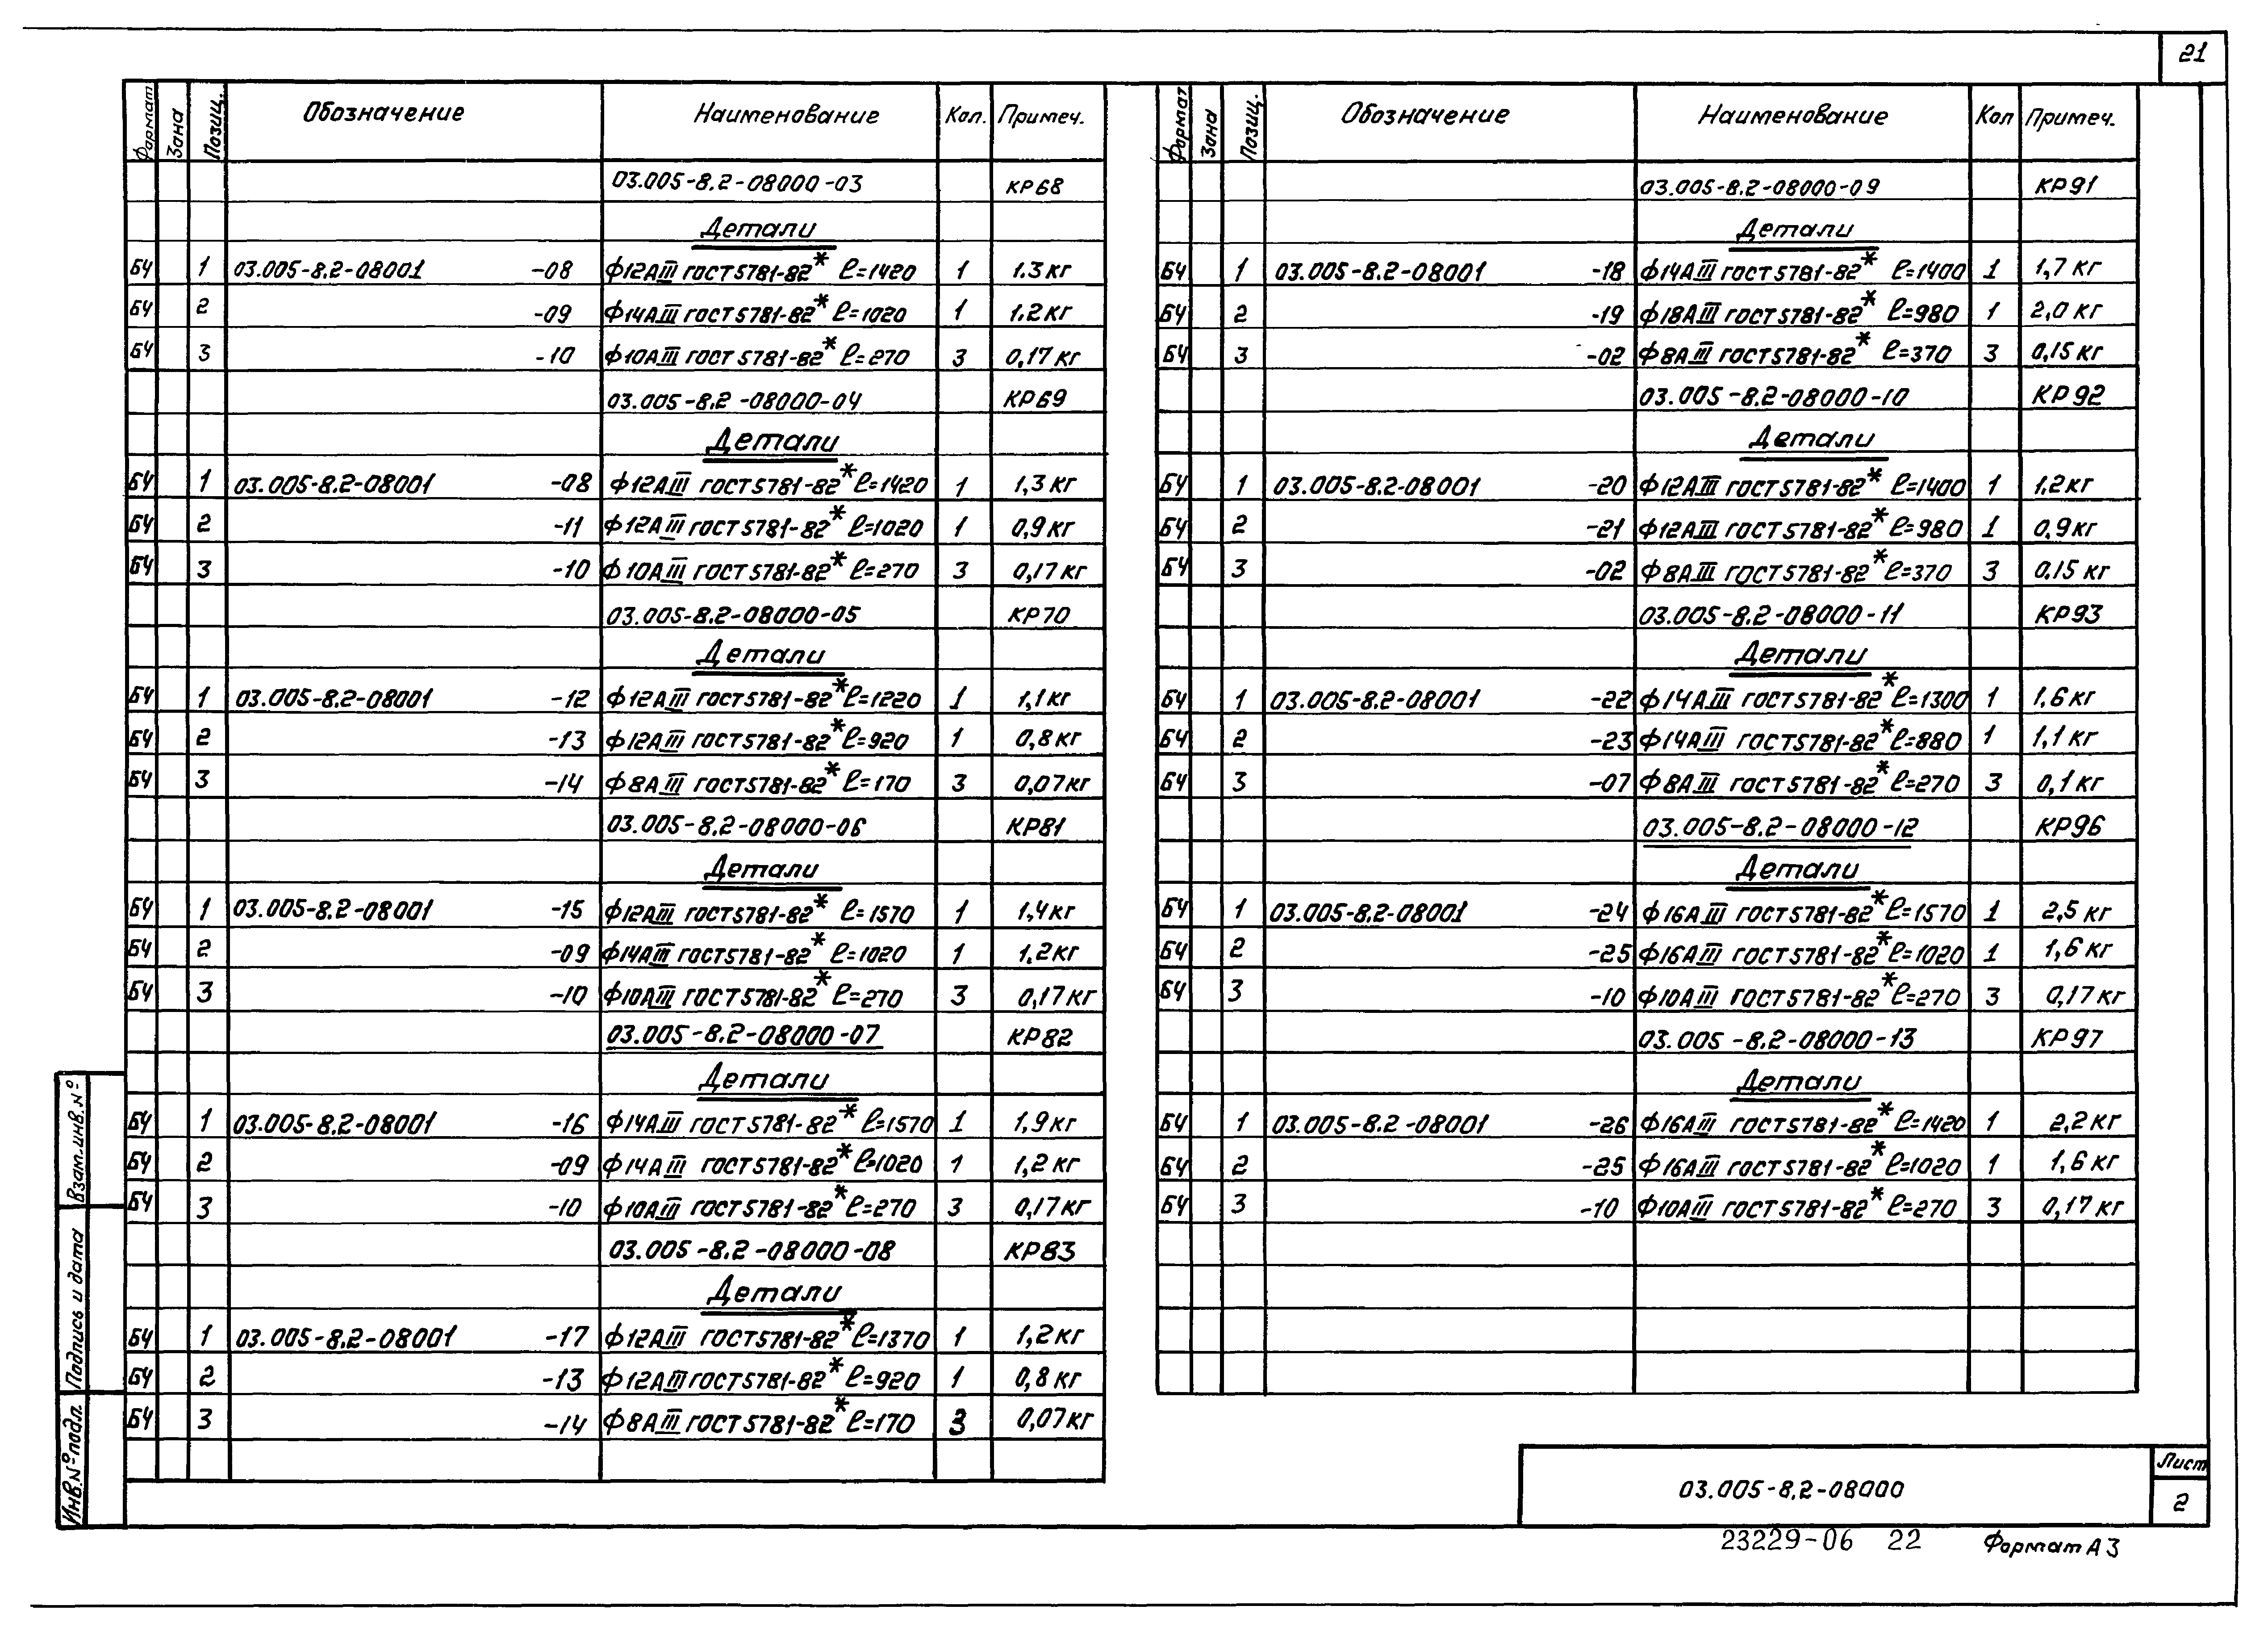 21
Формат Зона Позиц. Обозначение Наименование Кол. Примеч.
03.005-8.2-08000-03 КР68
Детали
БЧ 1 03.005-8.2-08001 -08 ф12АIII ГОСТ5781-82* ℓ=1420 1 1.3кг
БЧ 2 -09 ф14АIII ГОСТ5781-82* ℓ=1020 1 1.2кг
БЧ 3 -10 ф10АIII ГОСТ5781-82* ℓ=270 3 0,17кг
03.005-8.2-08000-04 КР69
Детали
БЧ 1 03.005-8.2-08001 -08 ф12АIII ГОСТ5781-82* ℓ=1420 1 1,3кг
БЧ 2 -11 ф12АIII ГОСТ5781-82* ℓ=1020 1 0,9кг
БЧ 3 -10 ф10АIII ГОСТ5781-82* ℓ=270 3 0,17кг
03.005-8.2-08000-05 КР70
Детали
БЧ 1 03.005-8.2-08001 -12 ф12АIII ГОСТ5781-82* ℓ=1220 1 1,1кг
БЧ 2 -13 ф12АIII ГОСТ5781-82* ℓ=920 1 0,8кг
БЧ 3 -14 ф8АIII ГОСТ5781-82* ℓ=170 3 0,07кг
03.005-8.2-08000-06 КР81
Детали
БЧ 1 03.005-8.2-08001 -15 ф12АIII ГОСТ5781-82* ℓ=1570 1 1,4кг
БЧ 2 -09 ф14АIII ГОСТ5781-82* ℓ=1020 1 1.2кг
БЧ 3 -10 ф10АIII ГОСТ5781-82* ℓ=270 3 0,17кг
03.005-8.2-08000-07 КР82
Детали
БЧ 1 03.005-8.2-08001 -16 ф14АIII ГОСТ5781-82* ℓ=1570 1 1,9кг
БЧ 2 -09 ф14АIII ГОСТ5781-82* ℓ=1020 1 1,2кг
БЧ 3 -10 ф10АIII ГОСТ5781-82* ℓ=270 3 0,17кг
03.005-8.2-08000-08 КР83
Детали
БЧ 1 03.005-8.2-08001 -17 ф12АIII ГОСТ5781-82* ℓ=1370 1 1,2кг
БЧ 2 -13 ф12АIII ГОСТ5781-82* ℓ=920 1 0,8кг
БЧ 3 -14 ф8АIII ГОСТ5781-82* ℓ=170 3 0,07кг
Формат Зона Позиц. Обозначение Наименование Кол Примеч.
03.005-8.2-08000-09 КР91
Детали
БЧ 1 03.005-8.2-08001 -18 ф14АIII ГОСТ5781-82* ℓ=1400 1 1,7кг
БЧ 2 -19 ф18АIII ГОСТ5781-82* ℓ=980 1 2,0кг
БЧ 3 -02 ф8АIII ГОСТ5781-82* ℓ=370 3 0,15кг
03.005-8.2-08000-10 КР92
Детали
БЧ 1 03.005-8.2-08001 -20 ф12АIII ГОСТ5781-82* ℓ=1400 1 1.2кг
БЧ 2 -21 ф12АIII ГОСТ5781-82* ℓ=980 1 0.9кг
БЧ 3 -02 ф8АIII ГОСТ5781-82* ℓ=370 3 0.15кг
03.005-8.2-08000-11 КР93
Детали
БЧ 1 03.005-8.2-08001 -22 ф14АIII ГОСТ5781-82* ℓ=1300 1 1,6кг
БЧ 2 -23 ф14АIII ГОСТ5781-82* ℓ=880 1 1,1кг
БЧ 3 -07 ф8АIII ГОСТ5781-82* ℓ=270 3 0,1кг
03.005-8.2-08000-12 КР96
Детали
БЧ 1 03.005-8.2-08001 -24 ф16АIII ГОСТ5781-82* ℓ=1570 1 2,5кг
БЧ 2 -25 ф16АIII ГОСТ5781-82* ℓ=1020 1 1,6кг
БЧ 3 -10 ф10АIII ГОСТ5781-82* ℓ=270 3 0,17кг
03.005-8.2-08000-13 КР97
Детали
БЧ 1 03.005-8.2-08001 -26 ф16АIII ГОСТ5781-82* ℓ=1420 1 2,2кг
БЧ 2 -25 ф16АIII ГОСТ5781-82* ℓ=1020 1 1,6кг
БЧ 3 -10 ф10АIII ГОСТ5781-82* ℓ=270 3 0,17кг
Взам.инв.№
Подпись и дата
Инв.№подл.
03.005-8.2-08000
Лист
2
23229-06 22 Формат А3